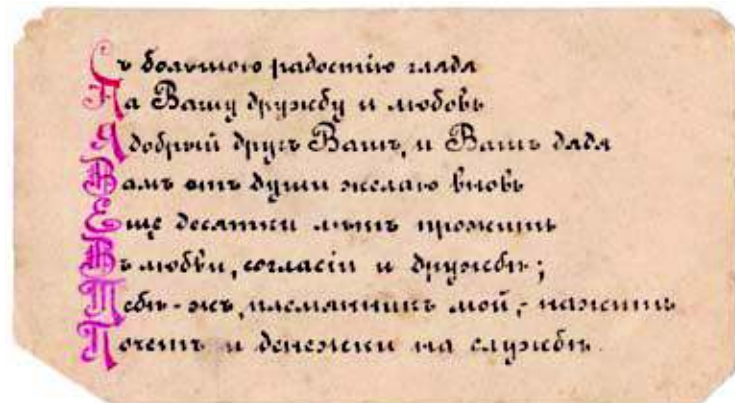 Съ большою радостію глядя
На Вашу дружбу и любовь
Я добрый другъ Вашъ, и Вашъ дядя
Вамъ отъ души желаю вновь
Еще десятки лѣтъ прожить
Въ любви, согласіи и дружбѣ;
Тебѣ-жъ, племянникъ мой,- нажить
Почетъ и денежки на службѣ.